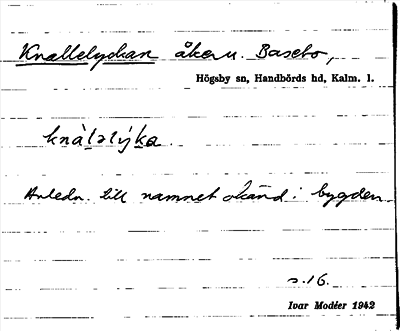 Knallelyckan åker u. Basebo,
Högsby sn, Handbörds hd, Kalm. l.
knàl̲əlýk̲a.
Anledn. till namnet okänd i bygden.
s. 16.
Ivar Modéer 1942